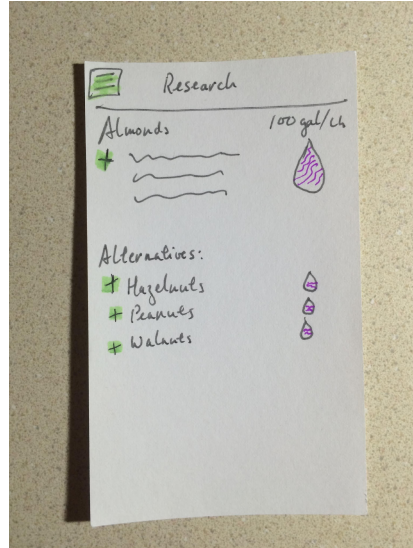 Research
Almonds 100 gal/
+
Alternatives:
+ Hazelnuts
+ Peanuts
+ Walnuts